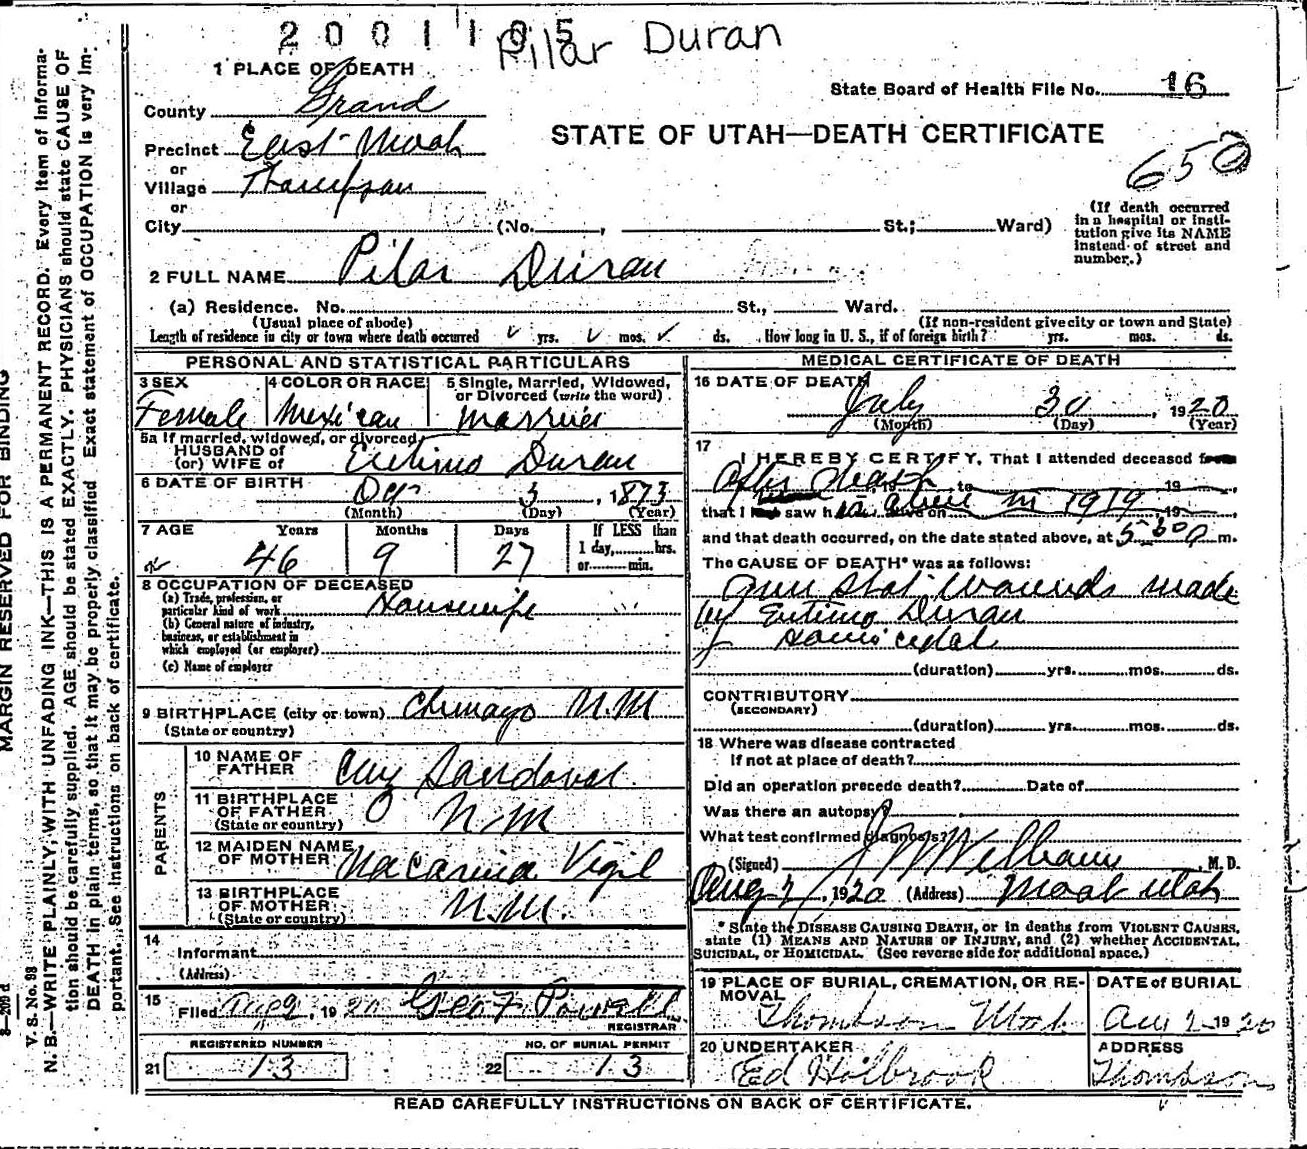 2001105
Pilar Duran
1 PLACE OF DEATH
State Board of Health File No. 16
County Grand
STATE OF UTAH—DEATH CERTIFICATE
Precinct East Moab
650
or
Village Thompson
or
City (No. , St.; Ward)
(If death occurred
in a hospital or insti-
tution give its NAME
instead of street and
number.)
2 FULL NAME Pilar Duran
(a) Residence. No. St., Ward.
(Usual place of abode) (If non-resident give city or town and State)
Length of residence in city or town where death occurred yrs. mos. ds. How long in U. S., if of foreign birth? yrs. mos. ds.
PERSONAL AND STATISTICAL PARTICULARS
3 SEX
Female
4 COLOR OR RACE
Mexican
5 Single, Married, Widowed,
or Divorced (write the word)
Married
5a If married, widowed, or divorced
HUSBAND of
(or) WIFE of Eutimo Duran
6 DATE OF BIRTH
Oct 3, 1873
(Month) (Day) (Year)
7 AGE Years Months Days If LESS than
46 9 27 1 day, hrs.
or min.
8 OCCUPATION OF DECEASED
(a) Trade, profession, or
particular kind of work Housewife
(b) General nature of industry,
business, or establishment in
which employed (or employer)
(c) Name of employer
9 BIRTHPLACE (city or town) Chimayo N.M
(State or country)
PARENTS
10 NAME OF
FATHER Sandoval
11 BIRTHPLACE
OF FATHER N.M
(State or country)
12 MAIDEN NAME
OF MOTHER Macarina Vigil
13 BIRTHPLACE
OF MOTHER N.M.
(State or country)
14
Informant
(Address)
15
Filed Aug 2, 1920 Geo F Powell
REGISTRAR
REGISTERED NUMBER
21 13
NO. OF BURIAL PERMIT
22 13
MEDICAL CERTIFICATE OF DEATH
16 DATE OF DEATH
July 30, 1920
(Month) (Day) (Year)
17
I HEREBY CERTIFY, That I attended deceased from
after death, to 19
that I saw h alive on in 1919, 19
and that death occurred, on the date stated above, at m.
The CAUSE OF DEATH* was as follows:
Gun shot wounds made
by Eutimo Duran
Homicidal
(duration) yrs. mos. ds.
CONTRIBUTORY
(SECONDARY)
(duration) yrs. mos. ds.
18 Where was disease contracted
If not at place of death?
Did an operation precede death? Date of
Was there an autopsy?
What test confirmed diagnosis?
(Signed) J W Williams, M. D.
Aug 2, 1920 (Address) Moab Utah
* State the DISEASE CAUSING DEATH, or in deaths from VIOLENT CAUSES,
state (1) MEANS AND NATURE OF INJURY, and (2) whether ACCIDENTAL,
SUICIDAL, or HOMICIDAL. (See reverse side for additional space.)
19 PLACE OF BURIAL, CREMATION, OR RE-
MOVAL
Thompson Utah
DATE of BURIAL
Aug 1 1920
20 UNDERTAKER
Ed Holbrook
ADDRESS
Thompson
READ CAREFULLY INSTRUCTIONS ON BACK OF CERTIFICATE.
MARGIN RESERVED FOR BINDING
V. S. No. 98
N. B.—WRITE PLAINLY, WITH UNFADING INK—THIS IS A PERMANENT RECORD. Every item of informa-
tion should be carefully supplied. AGE should be stated EXACTLY. PHYSICIANS should state CAUSE OF
DEATH in plain terms, so that it may be properly classified. Exact statement of OCCUPATION is very im-
portant. See instructions on back of certificate.